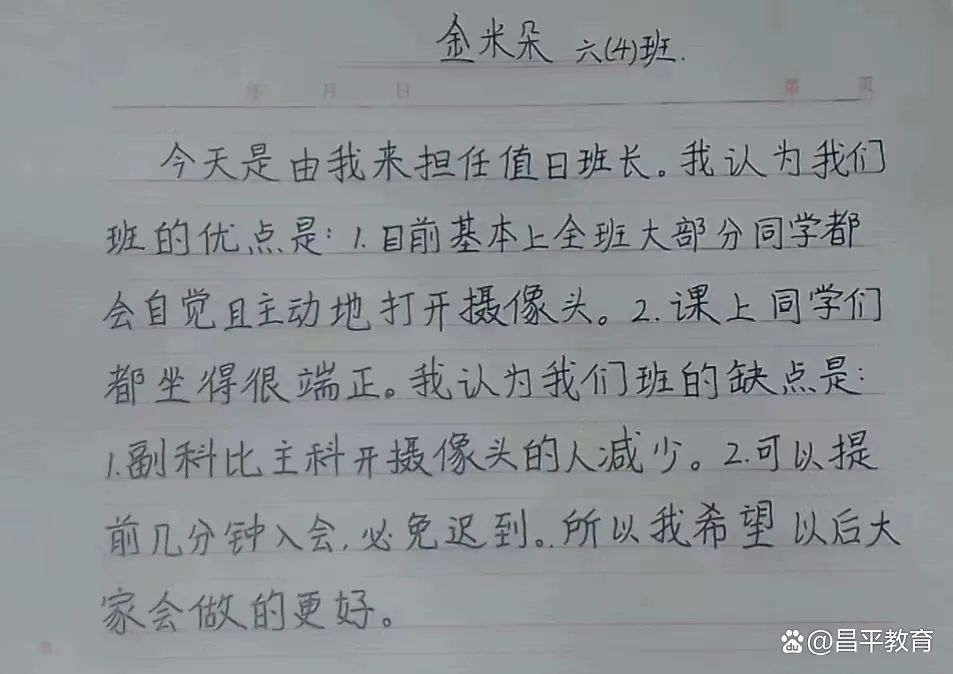 金米朵 六(4)班.
年 月 日 第 页
今天是由我来担任值日班长。我认为我们
班的优点是：1.目前基本上全班大部分同学都
会自觉且主动地打开摄像头。2.课上同学们
都坐得很端正。我认为我们班的缺点是：
1.副科比主科开摄像头的人减少。2.可以提
前几分钟入会，必免迟到。所以我希望以后大
家会做的更好。
@昌平教育